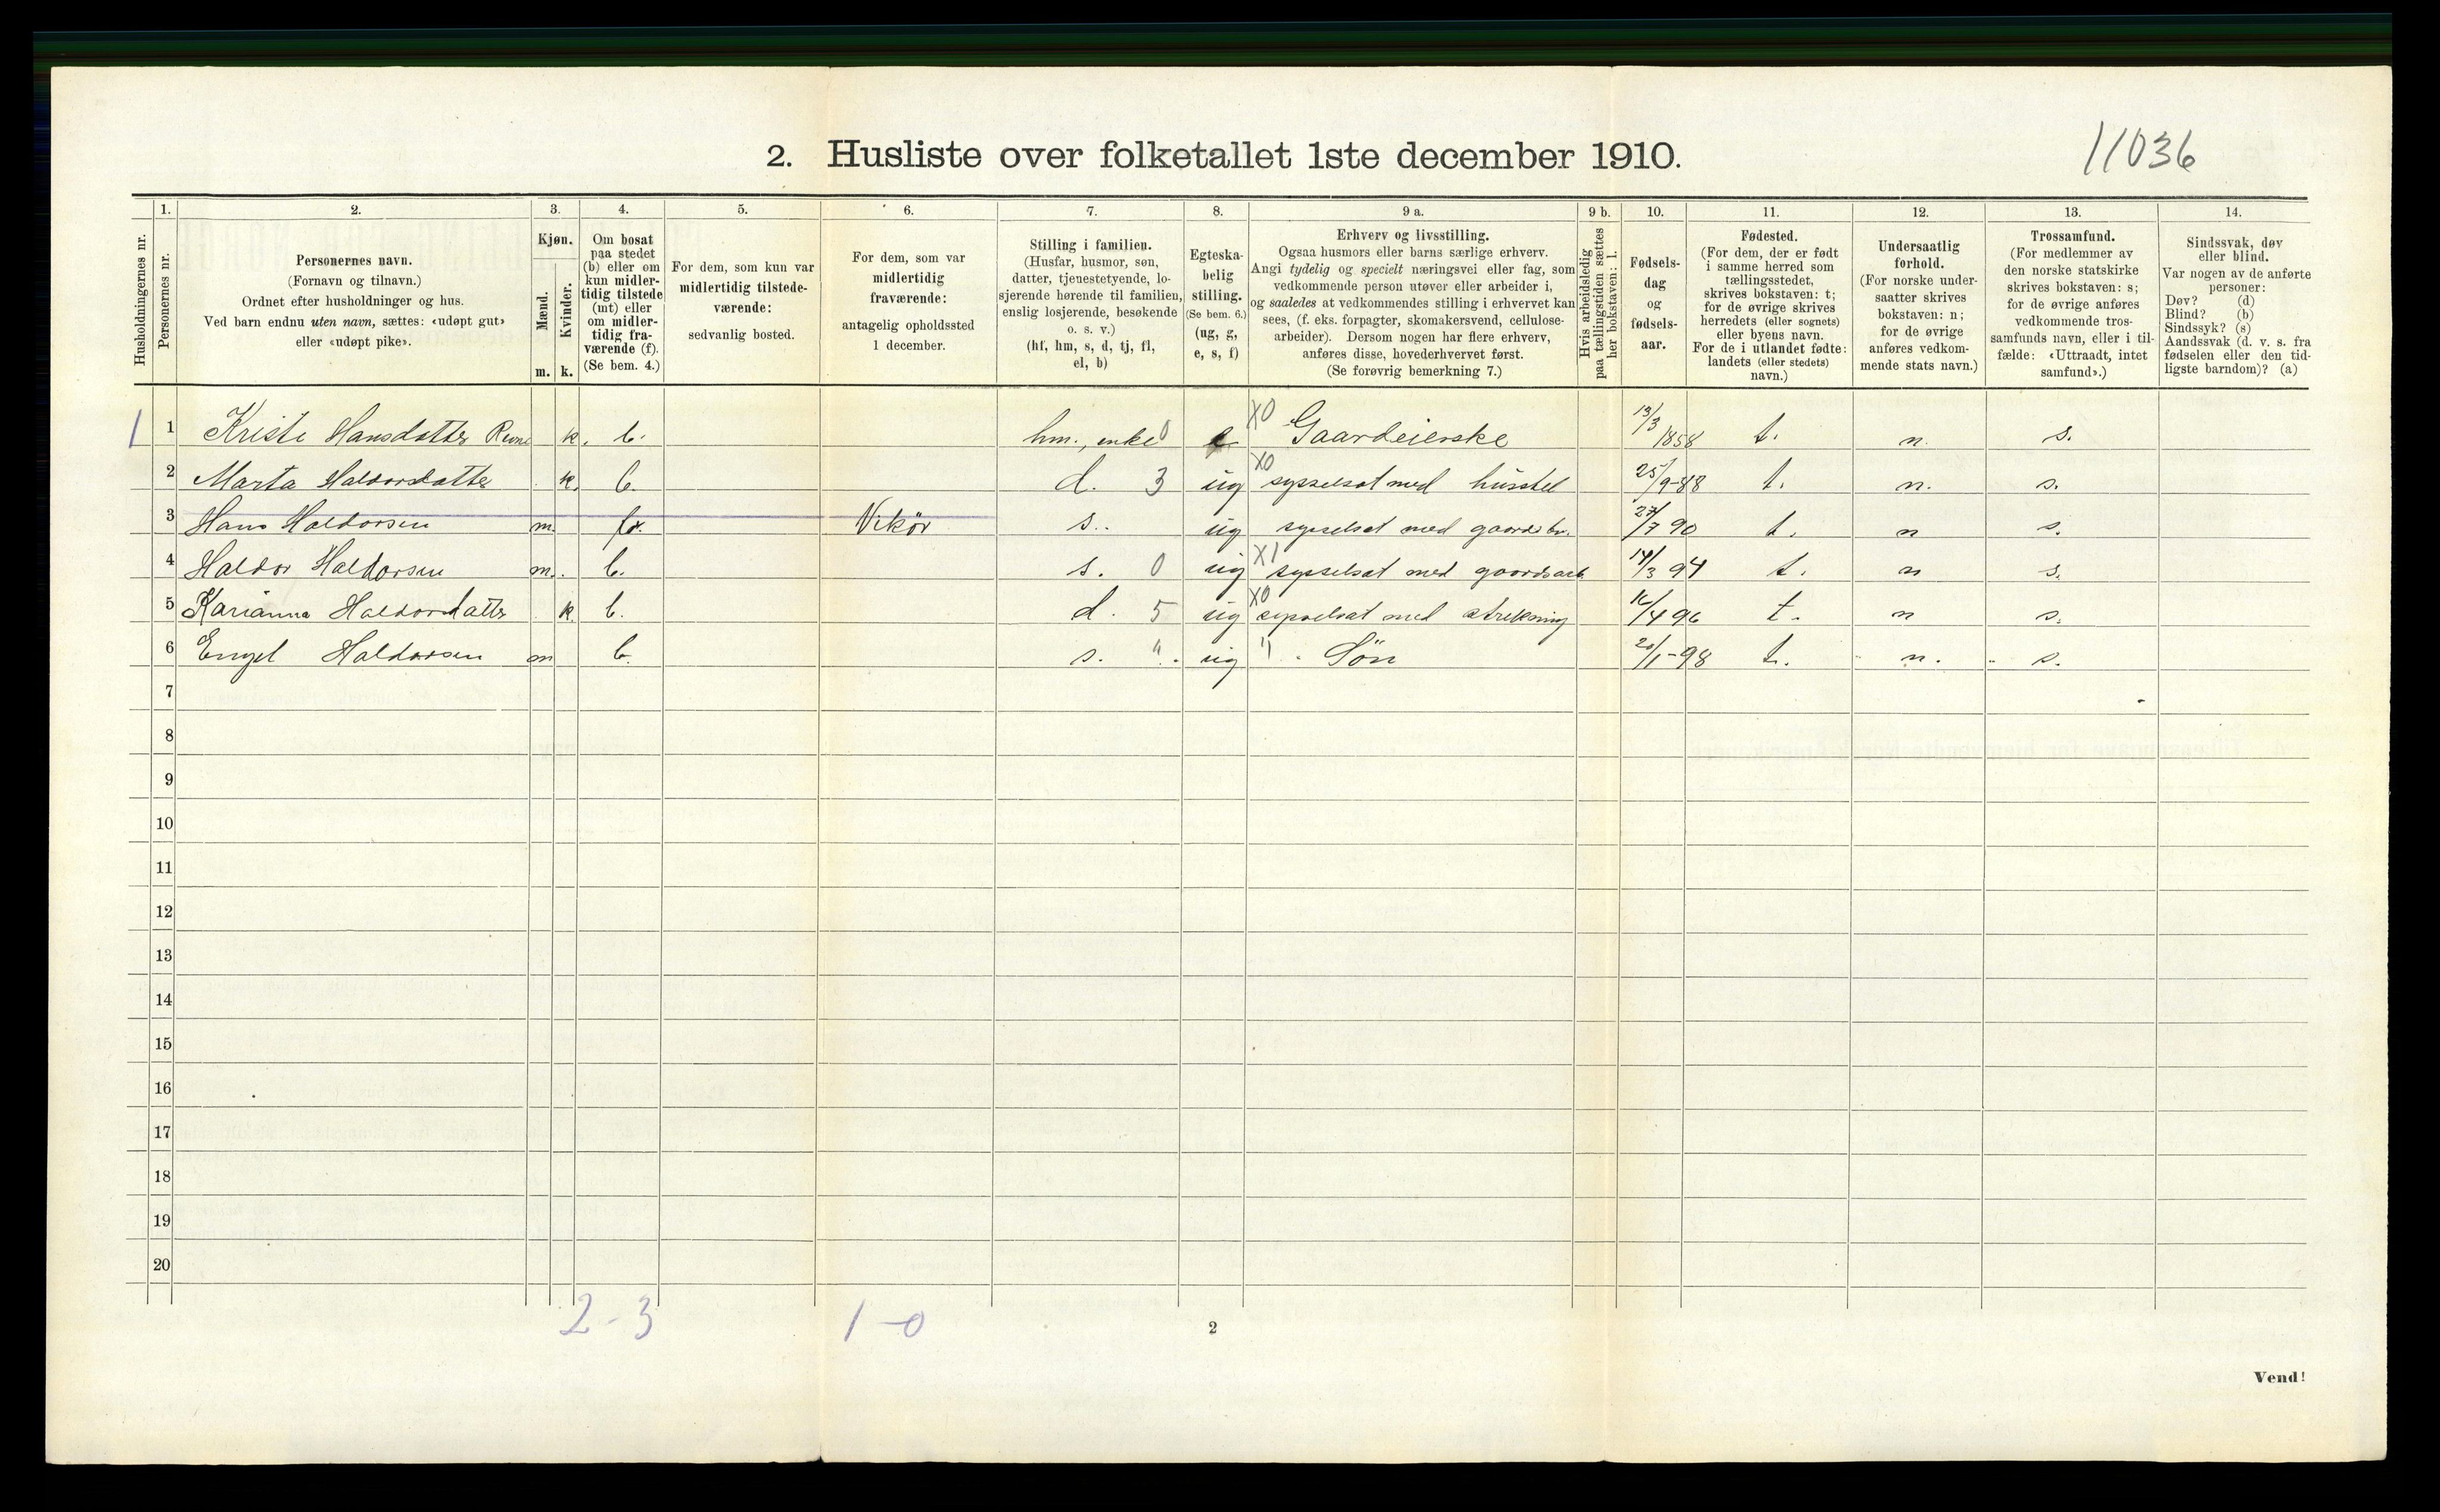 11036
2. Husliste over folketallet 1ste december 1910.
1. 2. 3. 4. 5. 6. 7. 8. 9 a. 9 b. 10. 11. 12. 13. 14.
Husholdningernes nr.
Personernes nr.
Personernes navn.
(Fornavn og tilnavn.)
Ordnet efter husholdninger og hus.
Ved barn endnu uten navn, sættes: «udøpt gut»
eller «udøpt pike».
Kjøn.
Mænd.
Kvinder.
m. k.
Om bosat
paa stedet
(b) eller om
kun midler-
tidig tilstede
(mt) eller
om midler-
tidig fra-
værende (f).
(Se bem. 4.)
For dem, som kun var
midlertidig tilstede-
værende:
sedvanlig bosted.
For dem, som var
midlertidig
fraværende:
antagelig opholdssted
1 december.
Stilling i familien.
(Husfar, husmor, søn,
datter, tjenestetyende, lo-
sjerende hørende til familien,
enslig losjerende, besøkende
o. s. v.)
(hf, hm, s, d, tj, fl,
el, b)
Egteska-
belig
stilling.
(Se bem. 6.)
(ug, g,
e, s, f)
Erhverv og livsstilling.
Ogsaa husmors eller barns særlige erhverv.
Angi tydelig og specielt næringsvei eller fag, som
vedkommende person utøver eller arbeider i,
og saaledes at vedkommendes stilling i erhvervet kan
sees, (f. eks. forpagter, skomakersvend, cellulose-
arbeider). Dersom nogen har flere erhverv,
anføres disse, hovederhvervet først.
(Se forøvrig bemerkning 7.)
Hvis arbeidsledig
paa tællingstiden sættes
her bokstaven: l.
Fødsels-
dag
og
fødsels-
aar.
Fødested.
(For dem, der er født
i samme herred som
tællingsstedet,
skrives bokstaven: t;
for de øvrige skrives
herredets (eller sognets)
eller byens navn.
For de i utlandet fødte:
landets (eller stedets)
navn.)
Undersaatlig
forhold.
(For norske under-
saatter skrives
bokstaven: n;
for de øvrige
anføres vedkom-
mende stats navn.)
Trossamfund.
(For medlemmer av
den norske statskirke
skrives bokstaven: s;
for de øvrige anføres
vedkommende tros-
samfunds navn, eller i til-
fælde: «Uttraadt, intet
samfund».)
Sindssvak, døv
eller blind.
Var nogen av de anførte
personer:
Døv? (d)
Blind? (b)
Sindssyk? (s)
Aandssvak (d. v. s. fra
fødselen eller den tid-
ligste barndom)? (a)
1 1 Kristi Hansdatter k. b. hm., enke 0 e X0 Gaardeierske 13/3 1858 t. n. s.
2 Marta Haldorsdatter k. b. d. 3 ug X0 sysselsat med husstel 25/9-88 t. n. s.
3 Hans Haldorsen m. Vikör s. ug sysselsat med gaardsbr. 27/7 90 t. n s.
4 Haldor Haldorsen m. b. s. 0 ug X1 sysselsat med gaardsarb 14/3 94 t. n s.
5 Karianna Haldorsdatter k. b. d. 5 ug X0 sysselsat med strikning 16/4 96 t. n s.
6 Engel Haldorsen m b. s. " ug " Sön 20/1-98 t. n. s.
7
8
9
10
11
12
13
14
15
16
17
18
19
20
2-3 1-0
2
Vend!